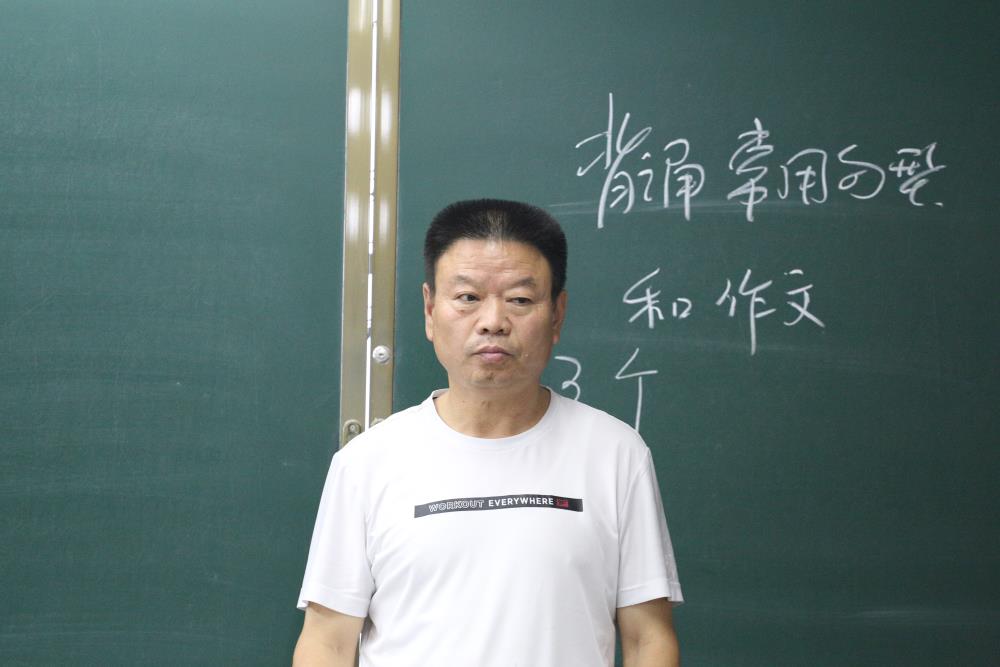 背诵常用句型
和作文
3个
WORKOUT EVERYWHERE